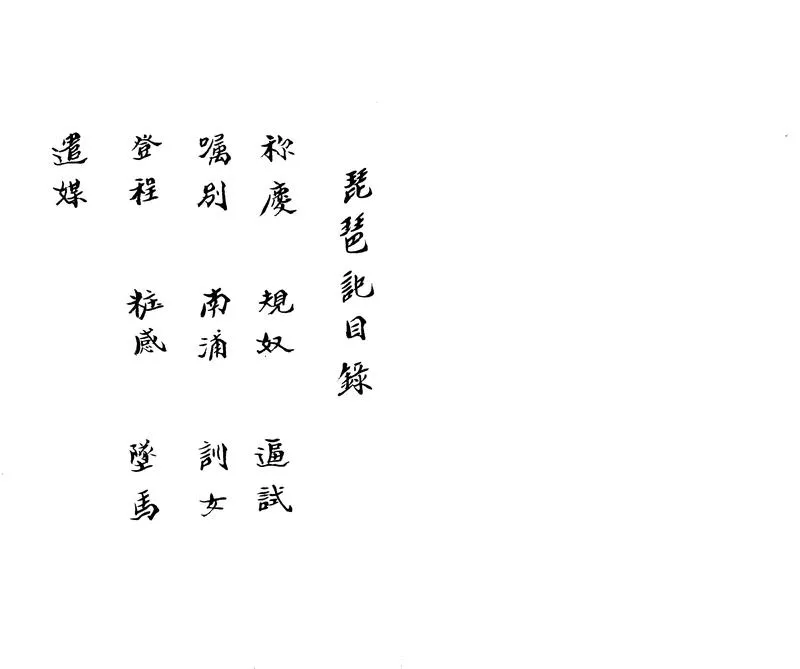 琵琶記目錄
祢慶 規奴 逼試
嘱别 南浦 訓女
登程 粧感 墜馬
遣媒